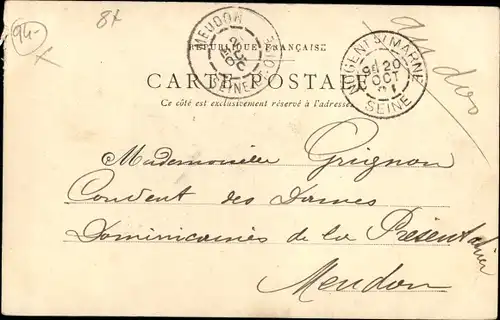 94-
8x
RÉPUBLIQUE FRANÇAISE
CARTE POSTALE
Ce côté est exclusivement réservé à l'adresse
MEUDON
SEINE-ET-OISE
NOGENT S/MARNE
20
OCT
SEINE
Mademoiselle Grignon
Couvent des Dames
Dominicaines de la Présentation
Meudon